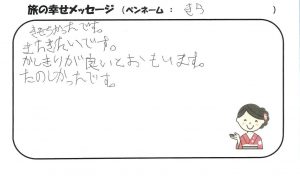 旅の幸せメッセージ (ペンネーム : きら )
きもちかったです。
またきたいです。
かしきりが良いとおもいます。
たのしかったです。